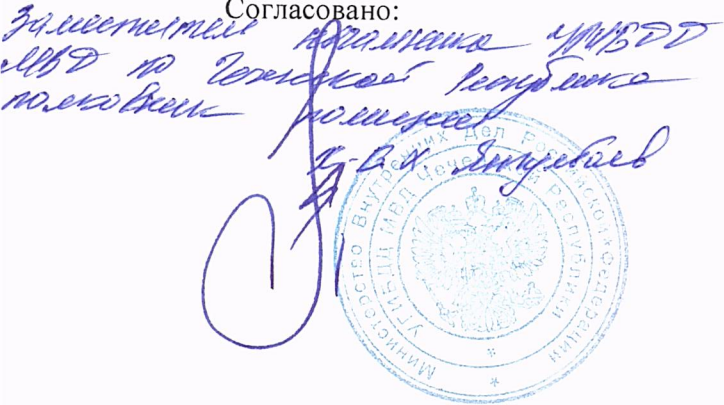 Согласовано:
Заместитель начальника УГИБДД
МВД по Чеченской Республике
полковник полиции
Х-А.Х Янгулбаев
Министерство Внутренних Дел Российской Федерации
УГИБДД МВД Чеченской Республики